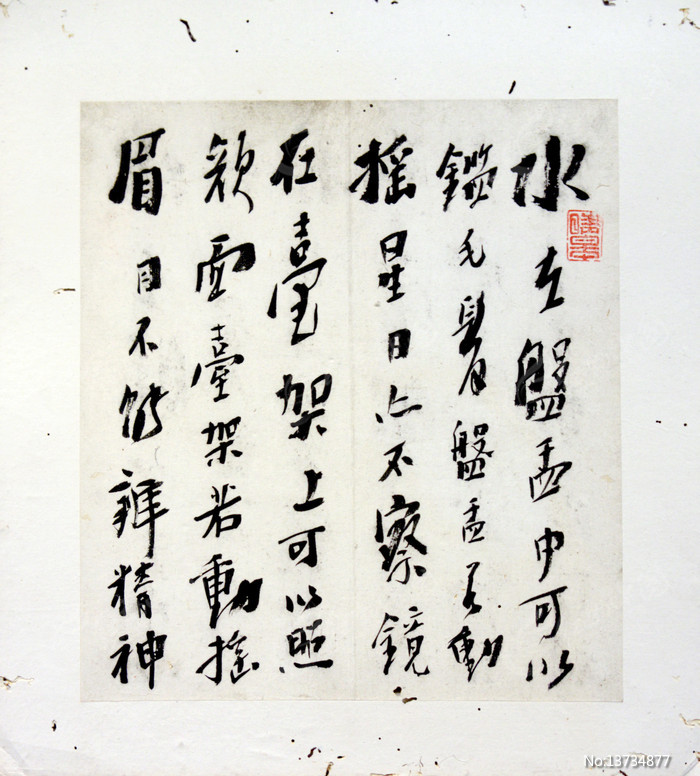 水在盤盂中可以
鑑毛髮盤盂若動
搖星日亦不察鏡
在臺架上可以照
顏面臺架若動搖
眉目不能辨精神
No:13734877